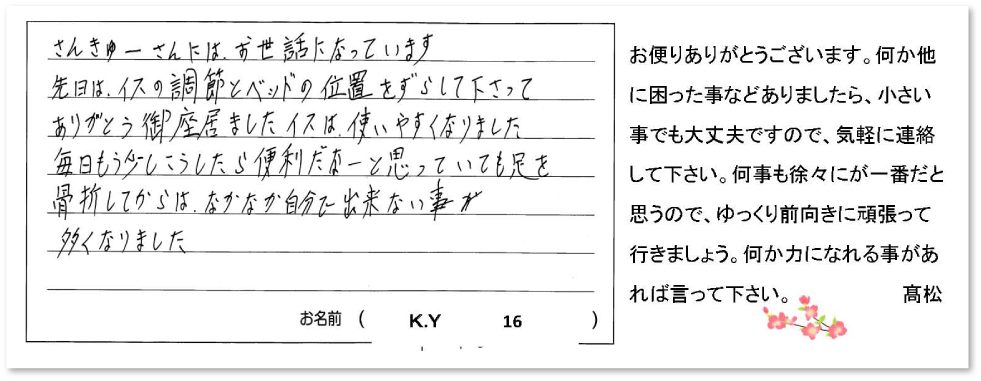 さんきゅーさんには、お世話になっています
先日は、イスの調節とベッドの位置をずらして下さって
ありがとう御座居ましたイスは、使いやすくなりました
毎日もう少しこうしたら便利だなーと思っていても足を
骨折してからは、なかなか自分で出来ない事が
多くなりました
お名前 ( K.Y 16 )
お便りありがとうございます。何か他
に困った事などありましたら、小さい
事でも大丈夫ですので、気軽に連絡
して下さい。何事も徐々にが一番だと
思うので、ゆっくり前向きに頑張って
行きましょう。何か力になれる事があ
れば言って下さい。 髙松